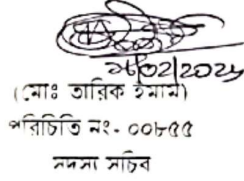 ২৫/০২/২০২৫
(মোঃ তারিক ইমাম)
পরিচিতি নং- ০০৮৫৫
সদস্য সচিব